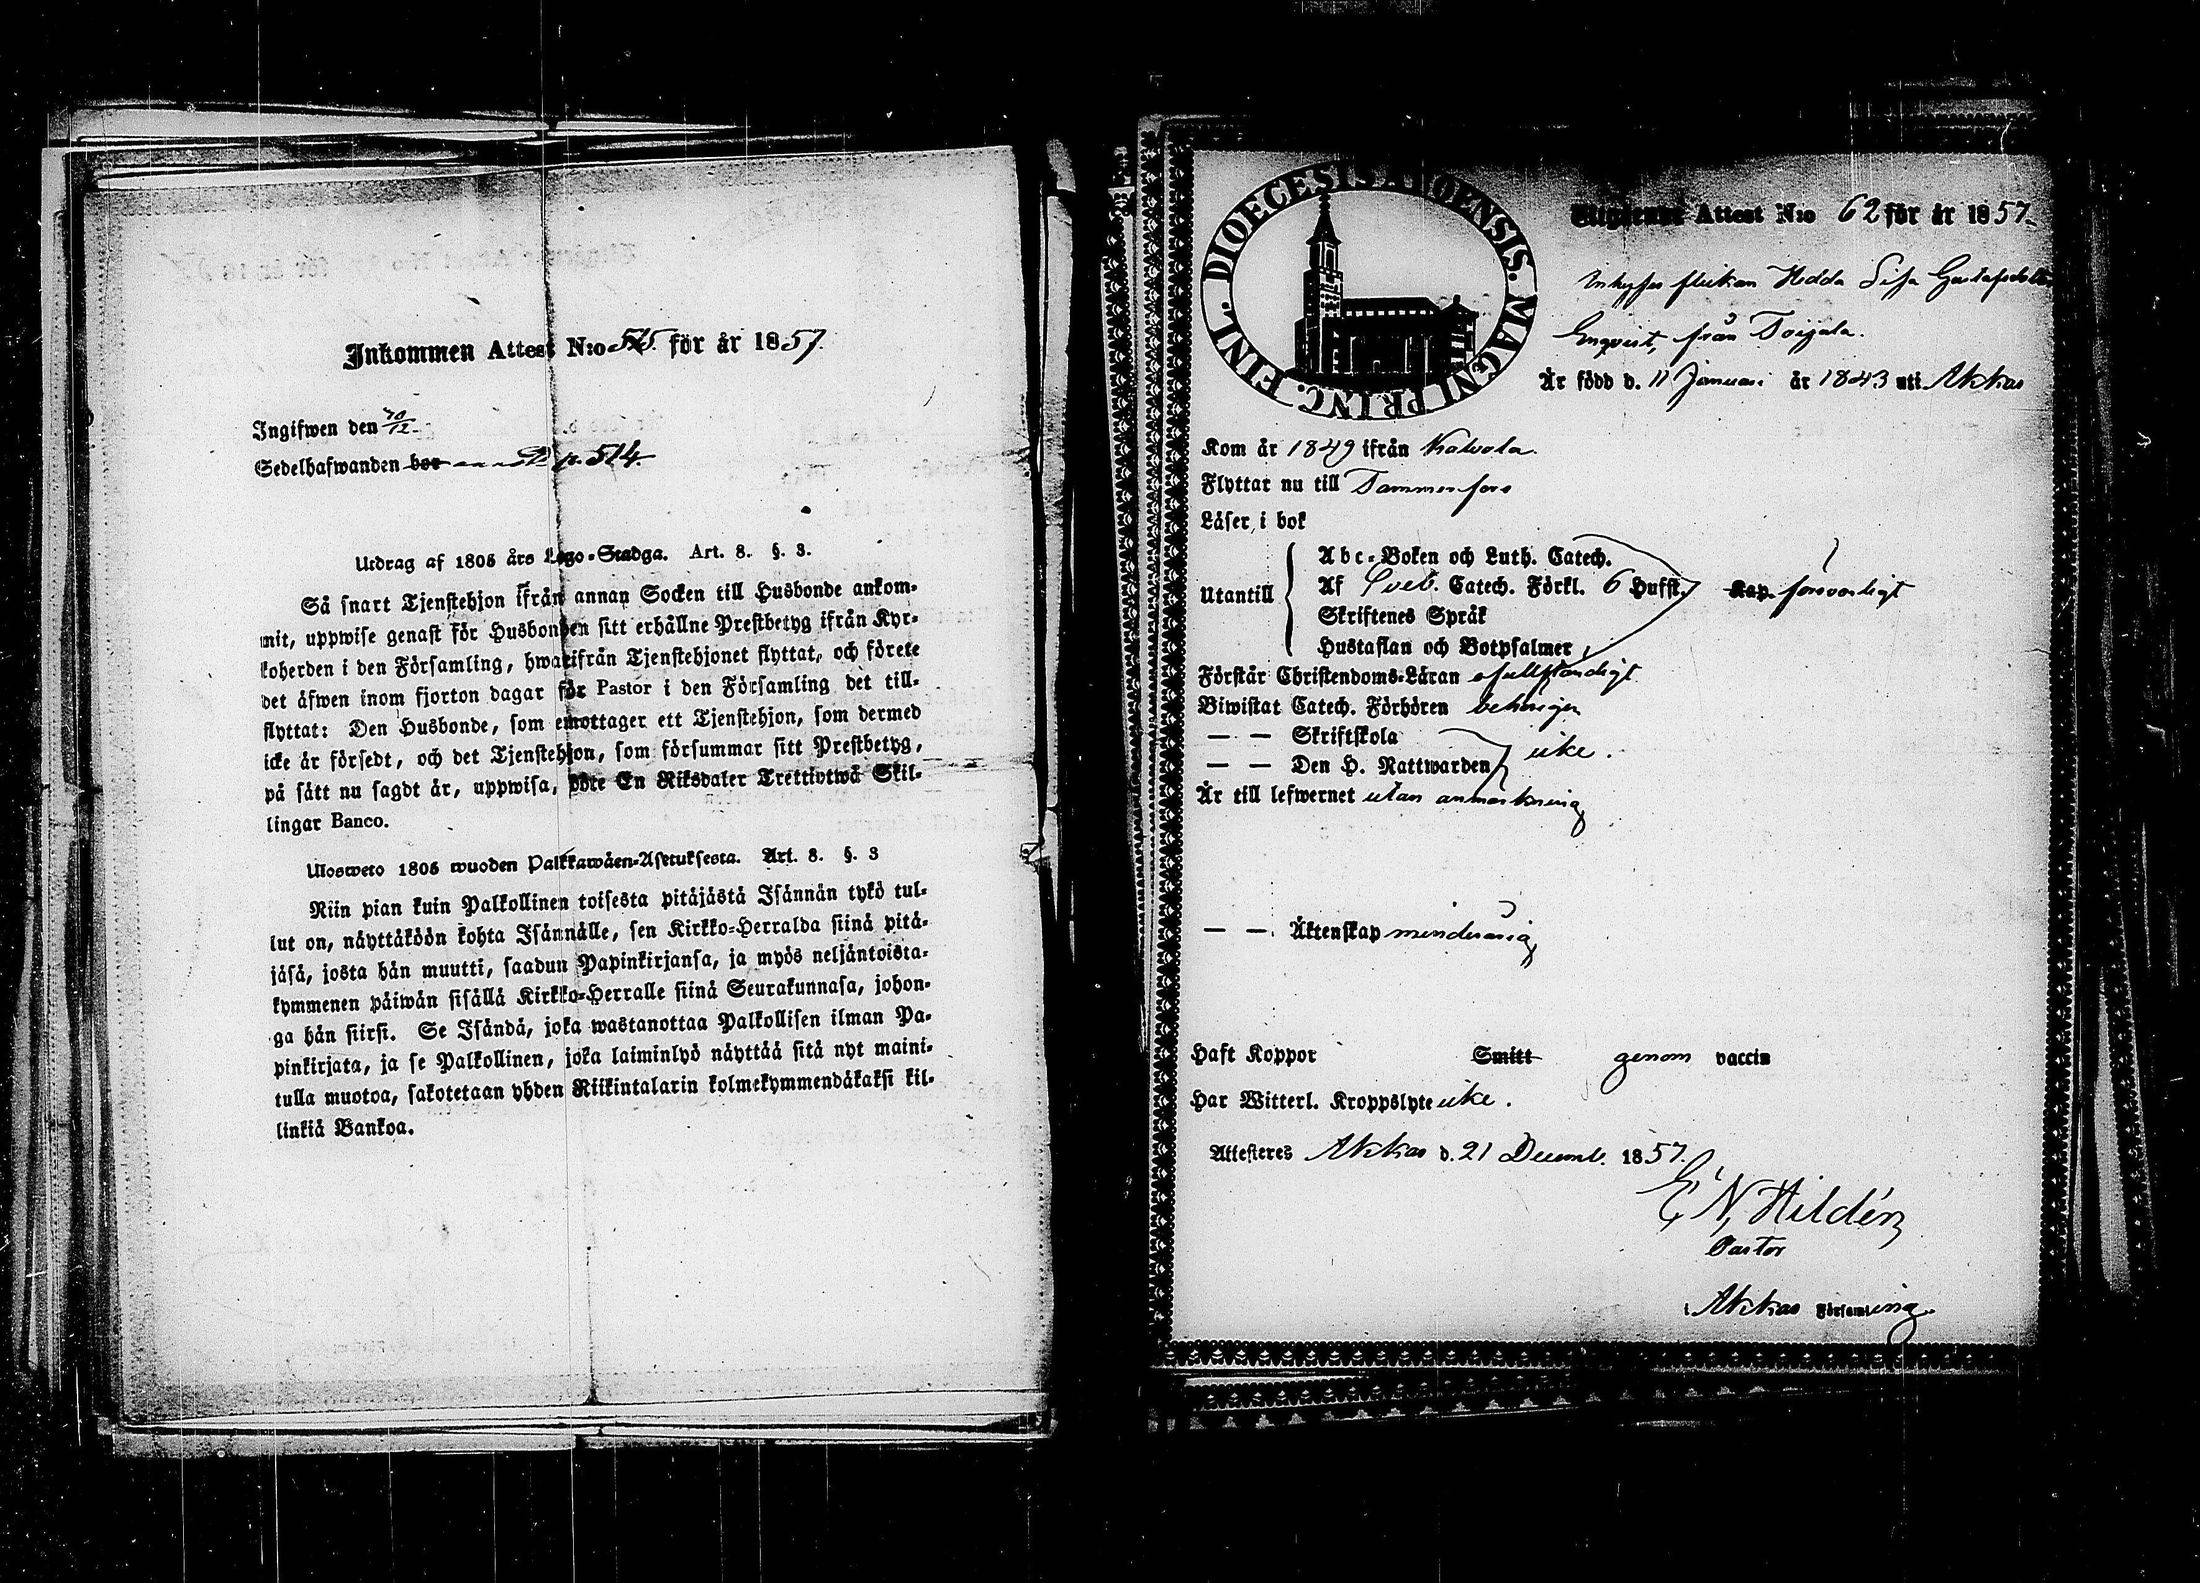 Inkommen Attest N:o 55. för år 1857.
Ingifwen den 30/12.
Sedelhafwanden bor p. 514.
Utdrag af 1805 års Lego-Stadga. Art. 8. §. 3.
Så snart Tjenstehjon ifrån annan Socken till Husbonde ankom-
mit, uppwise genast för Husbonden sitt erhållne Prestbetyg ifrån Kyr-
koherden i den Församling, hwarifrån Tjenstehjonet flyttat, och förete
det äfwen inom fjorton dagar för Pastor i den Församling det till-
flyttat: Den Husbonde, som emottager ett Tjenstehjon, som dermed
icke är försedt, och det Tjenstehjon, som försummar sitt Prestbetyg,
på sätt nu sagdt är, uppwisa, böte En Riksdaler Trettiotwå Skil-
lingar Banco.
Ulosweto 1805 wuoden Palkkawäen-Asetuksesta. Art. 8. §. 3
Niin pian kuin Palkollinen toisesta pitäjästä Isännän tykö tul-
lut on, näyttäköön kohta Isännälle, sen Kirkko-Herralda siinä pitä-
jäsä, josta hän muutti, saadun Papinkirjansa, ja myös neljäntoista-
kymmenen päiwän sisällä Kirkko-Herralle siinä Seurakunnasa, johon-
ga hän siirsi. Se Isändä, joka wastanottaa Palkollisen ilman Pa-
pinkirjata, ja se Palkollinen, joka laiminlyö näyttää sitä nyt maini-
tulla muotoa, sakotetaan yhden Riikintalarin kolmekymmendäkaksi kil-
linkiä Bankoa.
FINL. DIOECESIS ABOENSIS. MAGNI PRINC.
Utgående Attest N:o 62 för år 1857.
Inhyses flickan Hedda Lisa Gustafsdotter
Enqvist, från Toijala.
Är född d. 11 Januari år 1843 uti Akkas
Kom år 1849 ifrån Kalvola.
Flyttar nu till Tammerfors
Läser i bok
Utantill
Abc-Boken och Luth. Catech.
Af Sveb. Catech. Förkl. 6 Hufst. Kap. försvarligt
Skriftenes Språk
Hustaflan och Botpsalmer
Förstår Christendoms-Läran ofullständigt
Biwistat Catech. Förhören behörigen
— — Skriftskola
— — Den H. Nattwarden icke.
Är till lefwernet utan anmärkning
— — Äktenskap minderårig
Haft Koppor Smitt genom vaccin
Har Witterl. Kroppslyte icke.
Attesteres Akkas d. 21 Decemb. 1857.
E. N. Hildén
Pastor
i Akkas Församling.